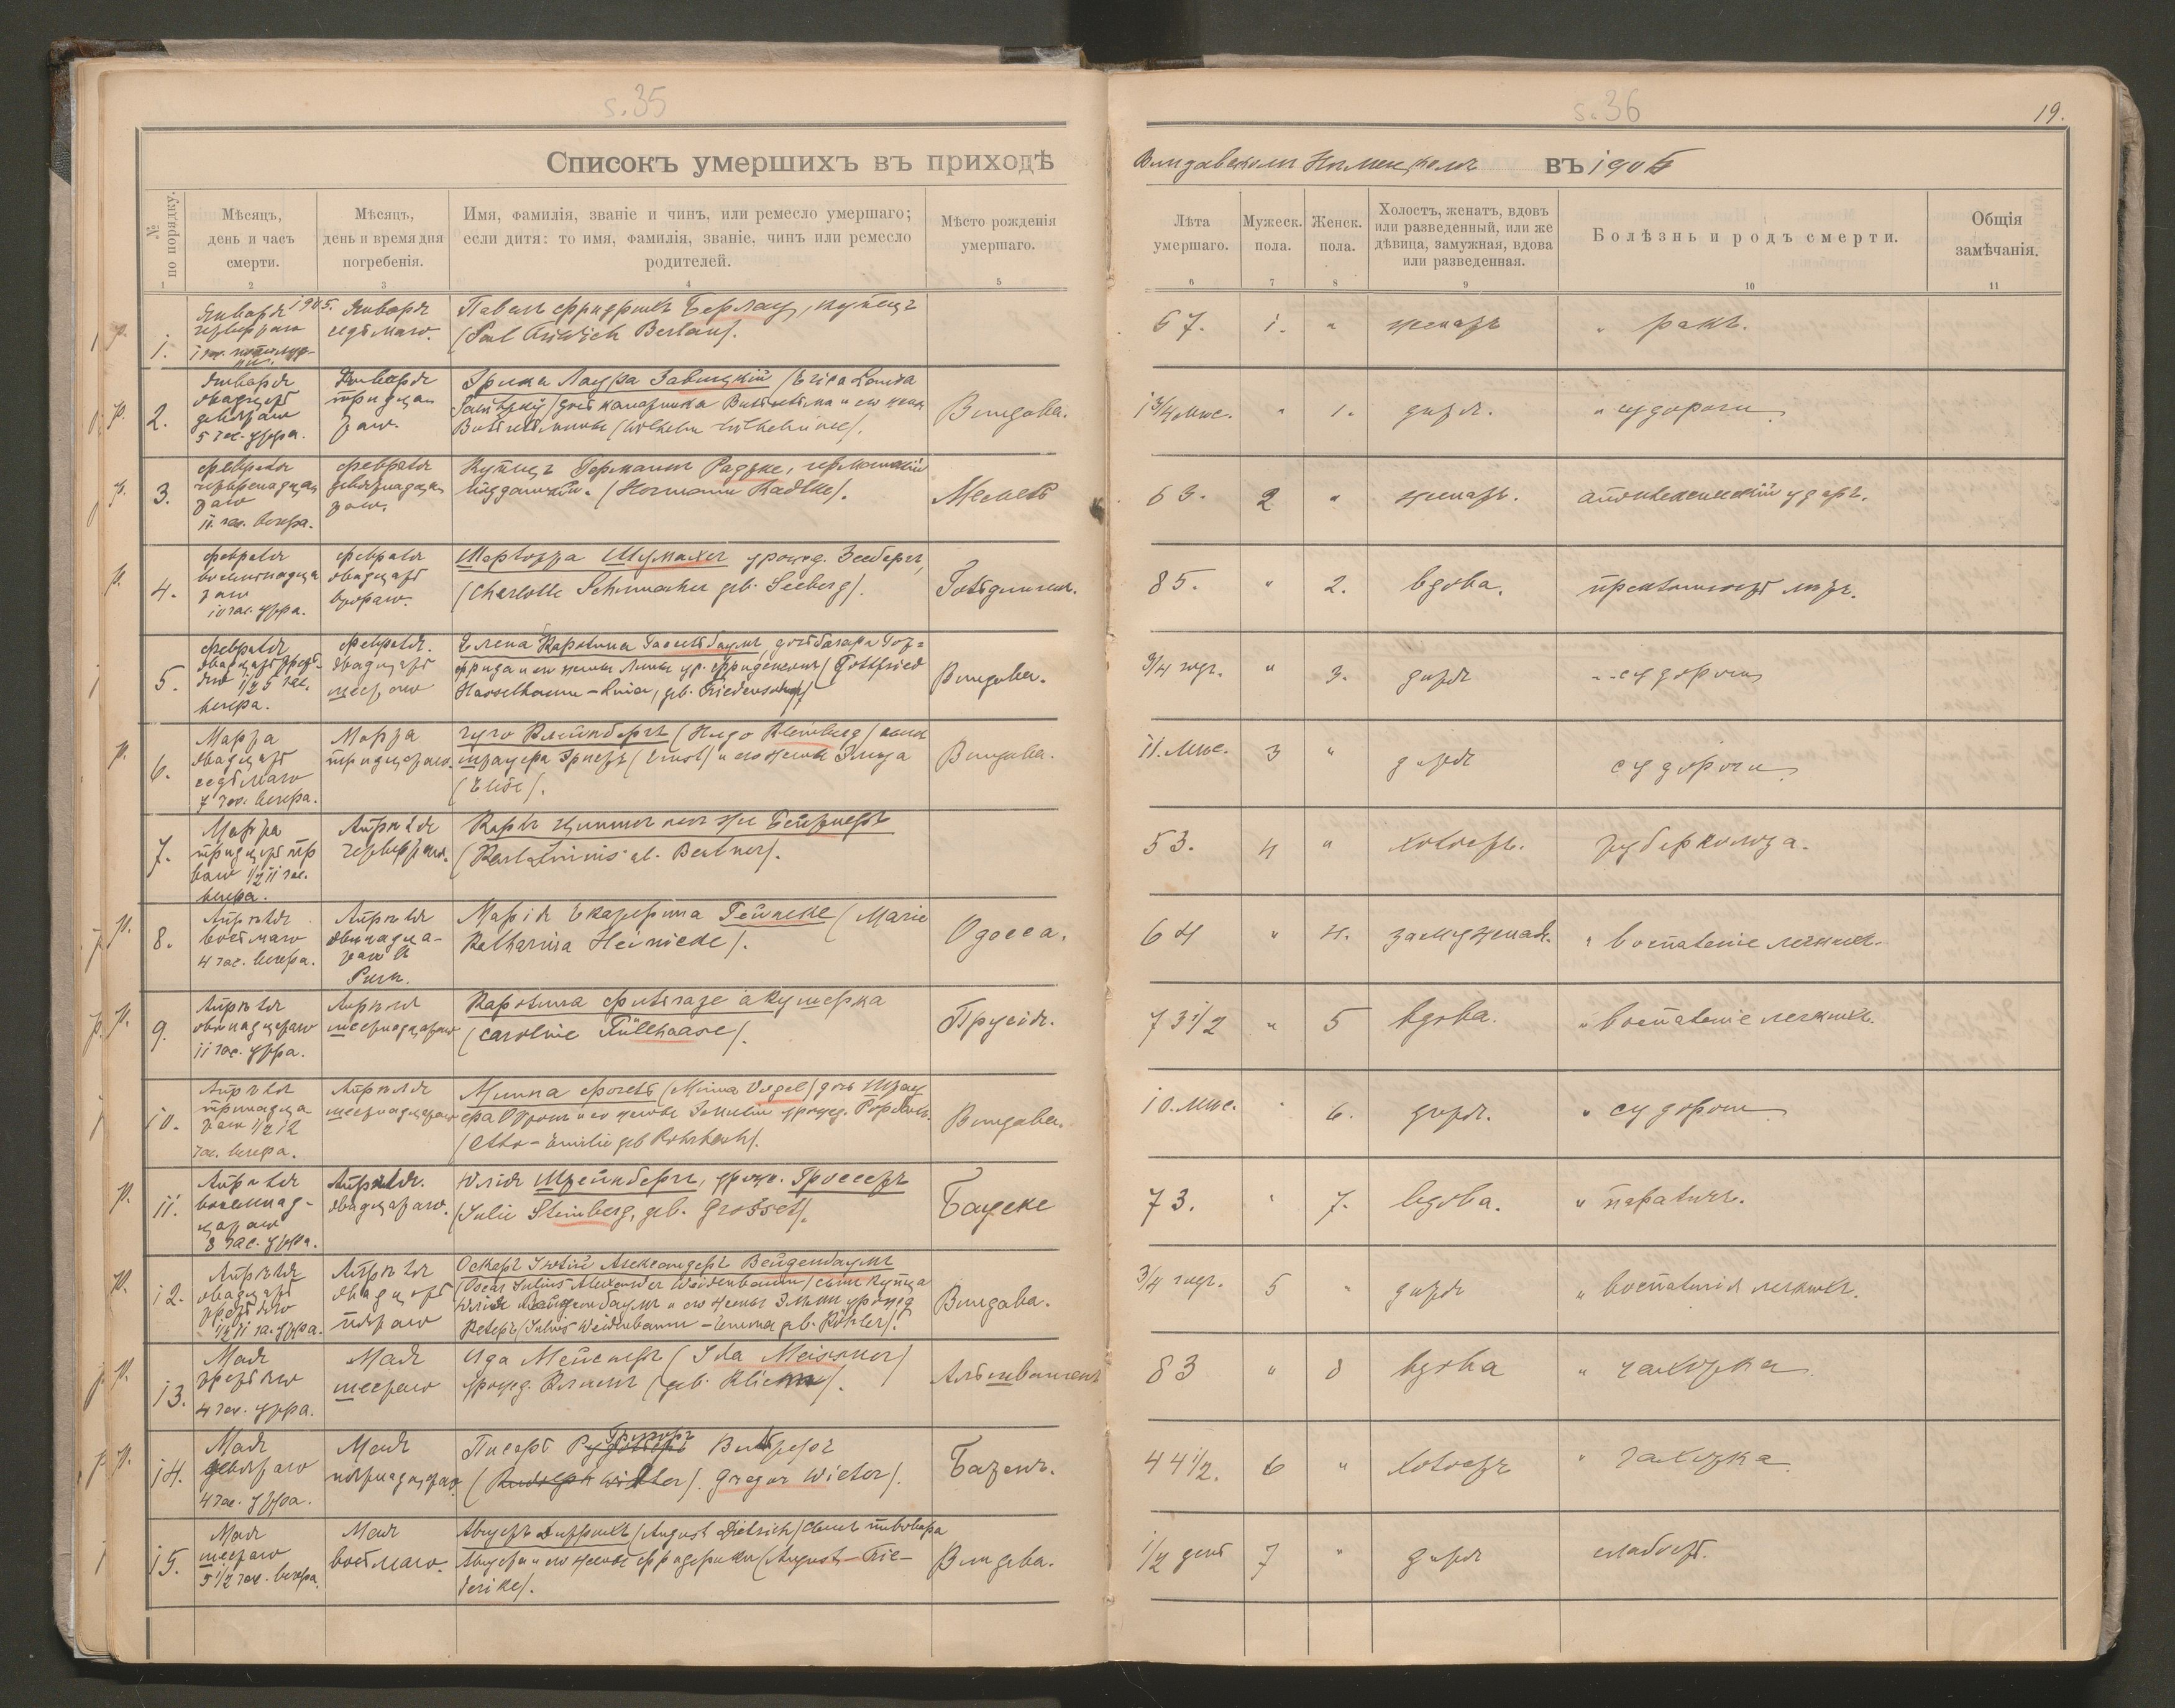 s. 35
s. 36
19.
Списокъ умершихъ въ приходѣ
Виндавскомъ Нѣмецкомъ въ 1905
№ по порядку.
Мѣсяцъ, день и часъ смерти.
Мѣсяцъ, день и время дня погребенія.
Имя, фамилія, званіе и чинъ, или ремесло умершаго; если дитя: то имя, фамилія, званіе, чинъ или ремесло родителей.
Мѣсто рожденія умершаго.
Лѣта умершаго.
Мужеск. пола.
Женск. пола.
Холостъ, женатъ, вдовъ или разведенный, или же дѣвица, замужная, вдова или разведенная.
Болѣзнь и родъ смерти.
Общія замѣчанія.
1 2 3 4 5 6 7 8 9 10 11
1.
Январь 1905.
четвертаго
1 час. пополуд-
ни.
Января
седьмаго.
Павелъ Фридрихъ Берлау, купецъ
(Paul Friedrich Berlau).
67. 1. " женатъ " ракъ.
2.
Января
двадцать
девятаго
5 час. утра.
Января
тридца-
таго.
Эрика Лаура Завицкій (Erica Laura
Вильгельмины (Wilhelm Wilhelmine).
Виндава.
1 3/4 мѣс. " 1. дитя. " судороги
3.
Февраля
четырнадца
таго
11. час. вечера.
Февраля
девятнадца
таго.
Купецъ Германъ Радтке, германскій
подданный. (Hermann Radtke).
63. 2 " женатъ. апоплексическій ударъ.
4.
Февраля
восемнадца
таго
10 час. утра.
Февраля
двадцать
втораго.
Шарлотта Шумахеръ урожд. Зеебергъ,
(Charlotte Schumacher geb. Seeberg).
Гольдингенъ.
85. " 2. вдова. преклонность лѣтъ.
5.
Февраля
двадцать треть-
яго 1/2 5 час.
вечера.
Февраля.
двадцать
шестаго
Елена Каролина Гассельбаумъ, дочь Готт=
фрида и его жены Лины ур. (Gottfried
Hasselbaum - Lina, geb.
Виндава.
3/4 года. " 3. дитя " судороги
6.
Марта
двадцать
седьмаго
7 час. вечера.
Марта
тридцатаго.
Гуго Клейнбергъ (Hugo Kleinberg) сынъ
штауера Эрнста (Ernst) и его жены Элиза
(Elise).
Виндава.
11. мѣс. 3 " дитя судороги
7.
Марта
тридцать пер
ваго 1/2 11 час.
вечера.
Апрѣля
четвертаго.
Карлъ Циннисъ или же Бейтнеръ
(Karl Zinnis al. Beutner).
53. 4 " холостъ. туберкулоза.
8.
Апрѣля
восьмаго
4 час. вечера.
Апрѣля
двѣнадца-
таго въ
Ригѣ.
Марія Екатерина Гейнеке (Marie
Katharina Heinicke).
Одесса.
64 " 4. замужная. " воспаленіе легкихъ.
9.
Апрѣля
двѣнадцатаго
11 час. утра.
Апрѣля
шестнадцатаго
Каролина Фильгазе акушерка
(Caroline Füllhaase).
Пруссія.
73 1/2 " 5 вдова. " воспаленіе легкихъ.
10.
Апрѣля
тринадца
таго 1/2 12
час. вечера.
Апрѣля
шестнадцатаго
Минна Фогель (Minna Vogel) дочь Штау
ера Оттона и его жены Эмиліи урожд. Рорбахъ.
(Otto - Emilie geb Rohrbach).
Виндава.
10. мѣс. " 6. дитя. " судороги
11.
Апрѣля
восемнад-
цатаго
8 час. утра.
Апрѣля.
двадцатаго.
Юлія Штейнбергъ, урожд. Гроссетъ
(Julie Steinberg, geb. Grosset).
Бауске
73. " 7. вдова. " параличъ.
12.
Апрѣля
двадцать
третьяго
1/2 11 час. утра.
Апрѣля
двадцать
пятаго
Оскаръ Юлій Александеръ Вейденбаумъ
(Oscar Julius Alexander Weidenbaum) сынъ купца
Юлія Вейденбаумъ и его жены Эммы урожд
Келеръ (Julius Weidenbaum - Emma geb. Köhler).
Виндава.
3/4 года. 5 " дитя " воспаленія легкихъ.
13.
Мая
третьяго
4 час. утра.
Мая
шестаго
Ида Мейснеръ (Ida Meissner)
урожд. Климъ (geb. Kliem).
Альшвангенъ
83 " 8 вдова " чахотка.
14.
Мая
девятаго
4 час. утра.
Мая
пятнадцатаго.
Писарь Грегоръ
(Rudolph Wictor). Gregor Wictor).
44 1/2. 6 " холостъ " чахотка.
15.
Мая
шестаго
5 1/2 час. вечера.
Мая
восьмаго.
Августъ Дитрихъ (August Dietrich) сынъ пивовара
Августа и его жены Фридерики (August - Frie-
derike).
Виндава.
1/2 дня 7 " дитя слабость.